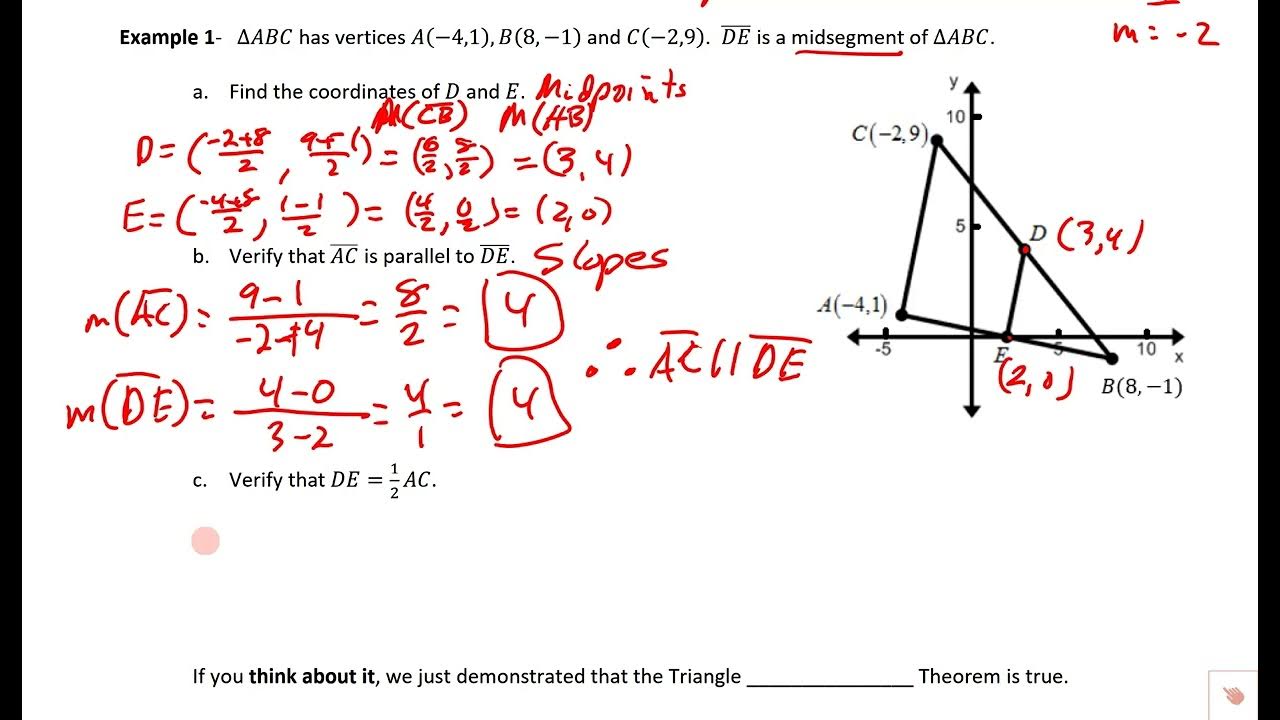 m = -2
Example 1- ΔABC has vertices A(−4,1), B(8,−1) and C(−2,9). D̅E̅ is a midsegment of ΔABC.
a. Find the coordinates of D and E. Midpoints
M(C̅B̅) M(A̅B̅)
D = (-2+8/2, 9+-1/2) = (6/2, 8/2) = (3,4)
E = (-4+8/2, 1-1/2) = (4/2, 0/2) = (2,0)
b. Verify that A̅C̅ is parallel to D̅E̅. Slopes
m(A̅C̅) = 9-1/-2+4 = 8/2 = 4
m(D̅E̅) = 4-0/3-2 = 4/1 = 4
∴ A̅C̅ || D̅E̅
c. Verify that DE = 1/2 AC.
If you think about it, we just demonstrated that the Triangle _______________ Theorem is true.
y
10
C(−2,9)
5
D (3,4)
A(−4,1)
-5 E 5 10 x
(2,0) B(8,−1)